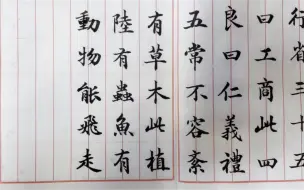 行省三十五
曰工商此四
良曰仁義禮
五常不容紊
有草木此植
陸有蟲魚有
動物能飛走